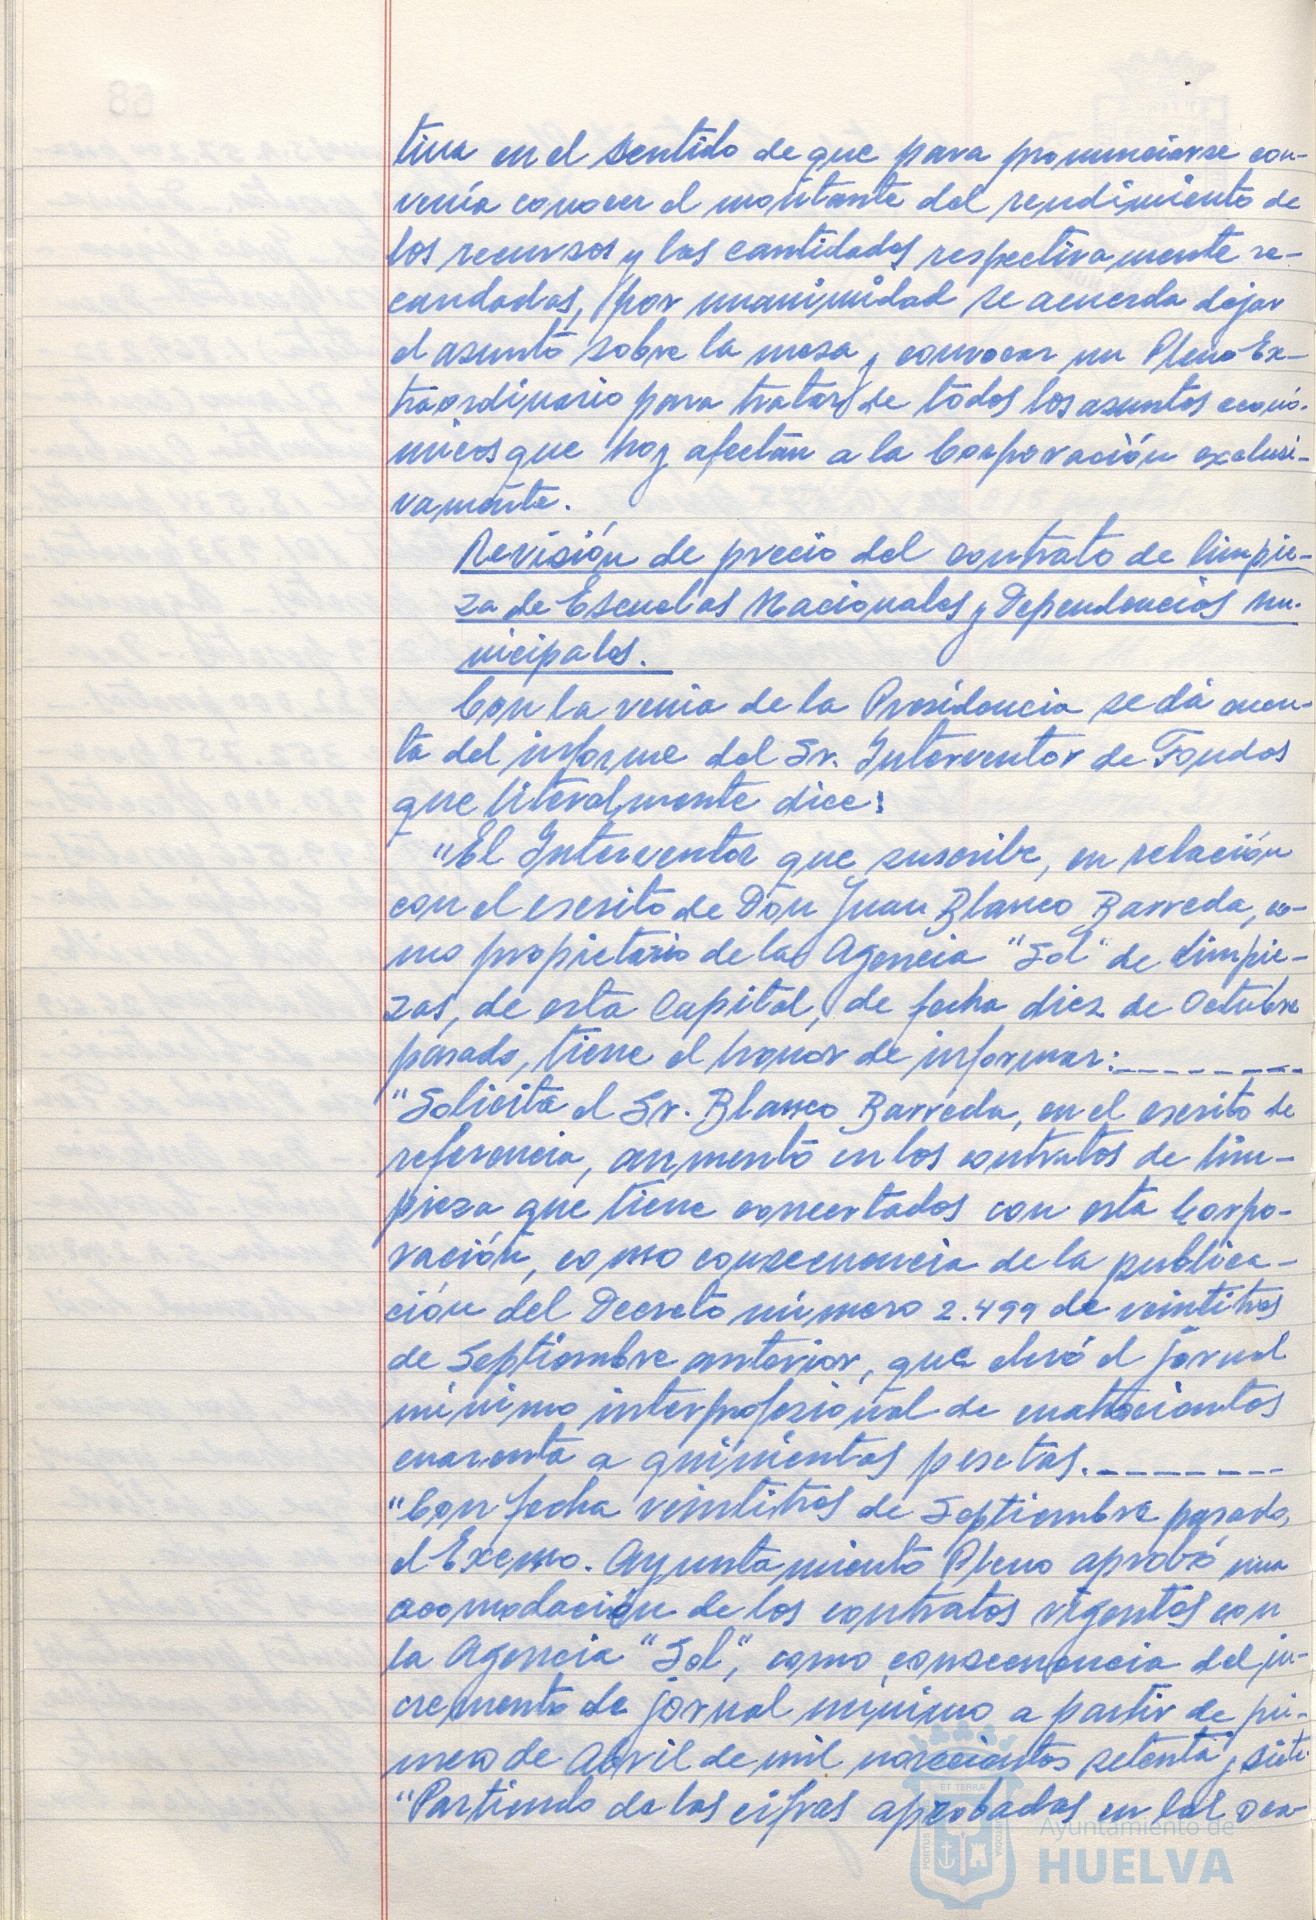 tiva en el sentido de que para pronunciarse con-
venía conocer el montante del rendimiento de
los recursos y las cantidades respectivamente re-
caudadas, por unanimidad se acuerda dejar
el asunto sobre la mesa y convocar un Pleno Ex-
traordinario para tratar de todos los asuntos econó-
micos que hoy afectan a la Corporación exclusi-
vamente.
Revisión de precio del contrato de limpie-
za de Escuelas Nacionales y Dependencias Mu-
nicipales.
Con la venia de la Presidencia se dá cuen-
ta del informe del Sr. Interventor de Fondos
que literalmente dice:
"El Interventor que suscribe, en relación
con el escrito de Don Juan Blanco Barreda, co-
mo propietario de la Agencia "Sol" de Limpie-
zas, de esta Capital, de fecha diez de Octubre
pasado, tiene el honor de informar:--------
"Solicita el Sr. Blanco Barreda, en el escrito de
referencia, aumento en los contratos de lim-
pieza que tiene concertados con esta Corpo-
ración, como consecuencia de la publica-
ción del Decreto número 2.499 de veintitres
de Septiembre anterior, que elevó el jornal
mínimo interprofesional de cuatrocientas
cuarenta a quinientas pesetas.-------
"Con fecha veintitres de Septiembre pasado,
el Excmo. Ayuntamiento Pleno aprobó una
acomodación de los contratos vigentes con
la Agencia "Sol", como consecuencia del in-
cremento de jornal mínimo a partir de pri-
mero de Abril de mil novecientos setenta y siete
"Partiendo de las cifras aprobadas en tal oca-
68
ET TERRÆ
PORTUS
CUSTODIA
Ayuntamiento de
HUELVA